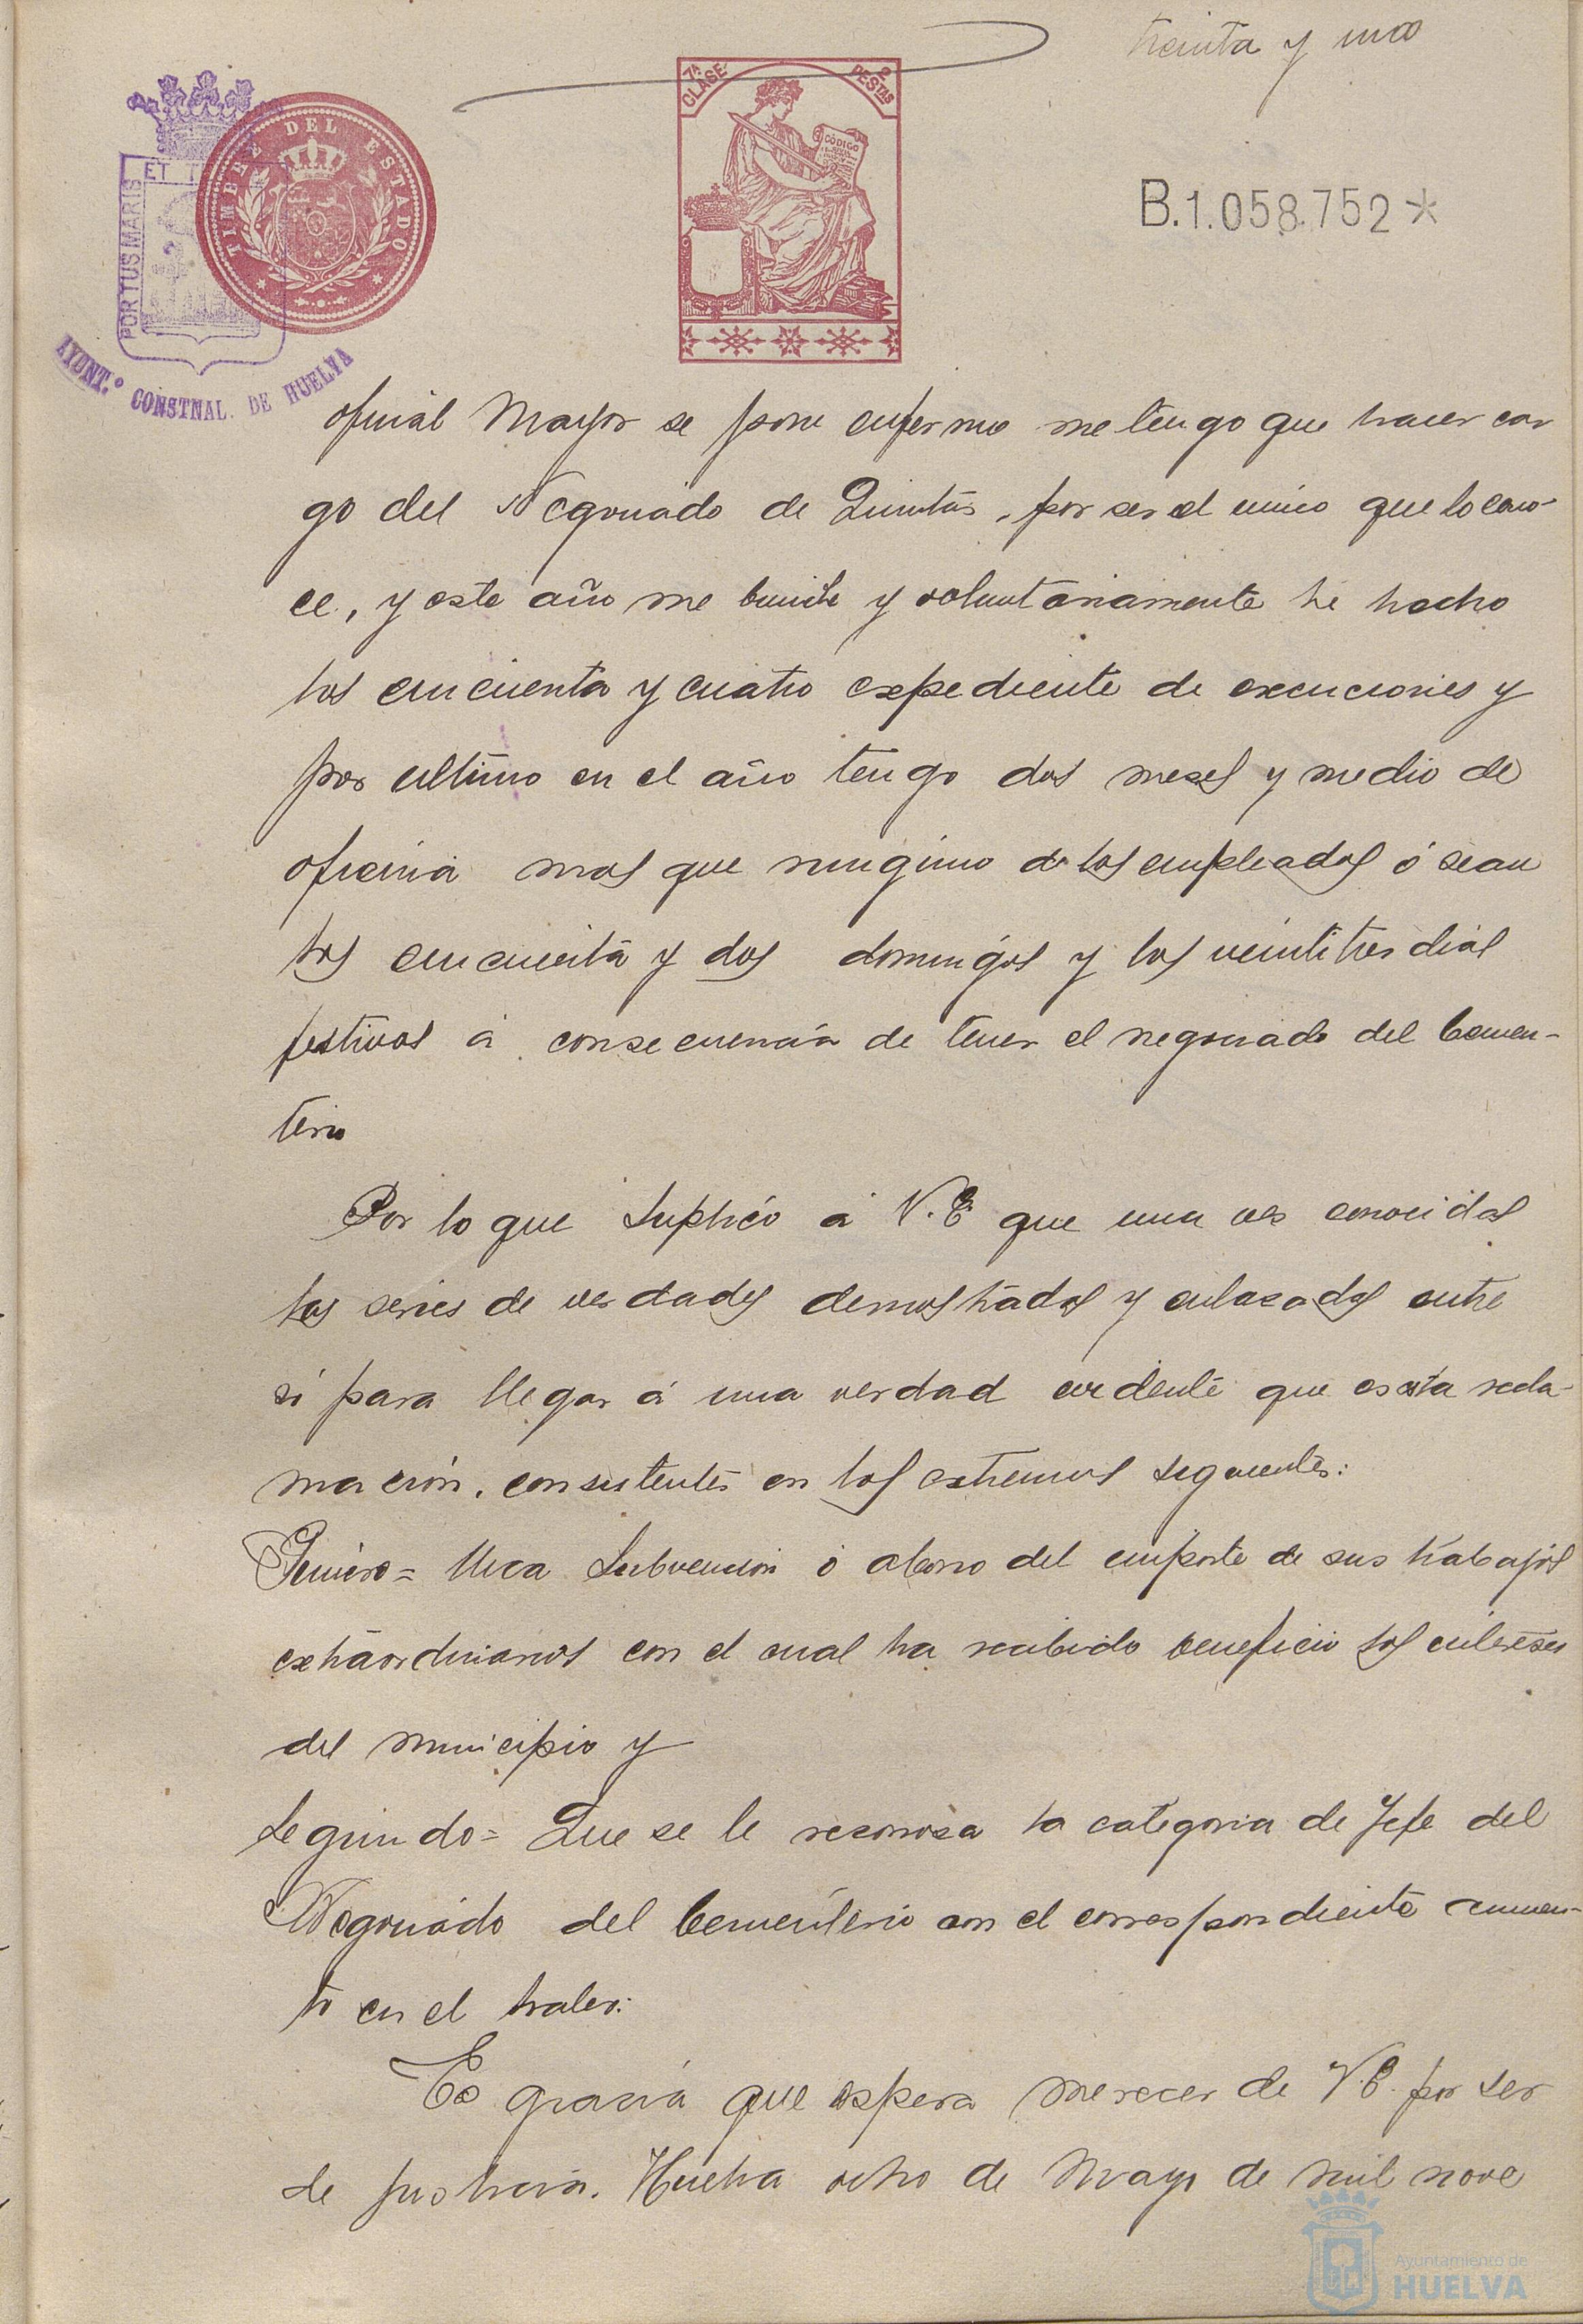 treinta y uno
7ª CLASE
2 PESTAS
CÓDIGO
TIMBRE DEL ESTADO
PORTUS MARIS
ET T
AYUNT.º CONSTNAL. DE HUELVA
B.1.058.752*
oficial Mayor se pone enfermo me tengo que hacer car
go del Negociado de Quintas, por ser el unico que lo cono-
ce, y este año me brinde y voluntariamente he hecho
los cincuenta y cuatro expediente de excenciones y
por ultimo en el año tengo dos meses y medio de
oficina mas que ninguno de los empleados ó sean
los cincuenta y dos domingos y los veintitres dias
festivos á consecuencia de tener el negociado del Cemen-
terio
Por lo que suplico á V.E que una ves conocidas
las series de verdades demostradas y enlasadas entre
si para llegar á una verdad evidente que es esta recla-
mación, consistentes en los extremos siguientes:
Primero= Una Subvencion ó abono del emporte de sus trabajos
extraordinarios con el cual ha recibido beneficio los intereses
del municipio y
Segundo= Que se le reconosca la categoria de Jefe del
Negociado del Cementerio con el correspondiente aumen-
to en el haber:
Es gracia que espera merecer de V.E. por ser
de justicia. Huelva ocho de Mayo de mil nove
Ayuntamiento de
HUELVA